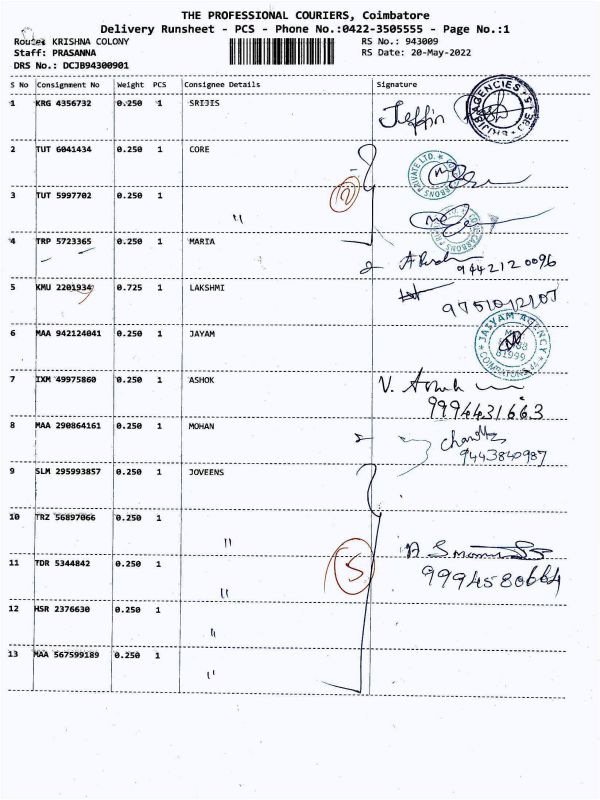 THE PROFESSIONAL COURIERS, Coimbatore
Delivery Runsheet - PCS - Phone No.:0422-3505555 - Page No.:1
Route: KRISHNA COLONY RS No.: 943009
Staff: PRASANNA RS Date: 20-May-2022
DRS No.: DCJB94300901
S No Consignment No Weight PCS Consignee Details Signature
1 KRG 4356732 0.250 1 SRIJIS Jeffin
2 TUT 6041434 0.250 1 CORE
3 TUT 5997702 0.250 1
"
4 TRP 5723365 0.250 1 MARIA
9442120096
5 KMU 2201934 0.725 1 LAKSHMI
9751012107
6 MAA 942124041 0.250 1 JAYAM JAIYAM AGENCY
7 IXM 49975860 0.250 1 ASHOK V. Ashok
9994431663
8 MAA 290864161 0.250 1 MOHAN
9443840987
9 SLM 295993857 0.250 1 JOVEENS
10 TRZ 56897066 0.250 1
"
11 TDR 5344842 0.250 1 5
9994580664
"
12 HSR 2376630 0.250 1
"
13 MAA 567599189 0.250 1
"